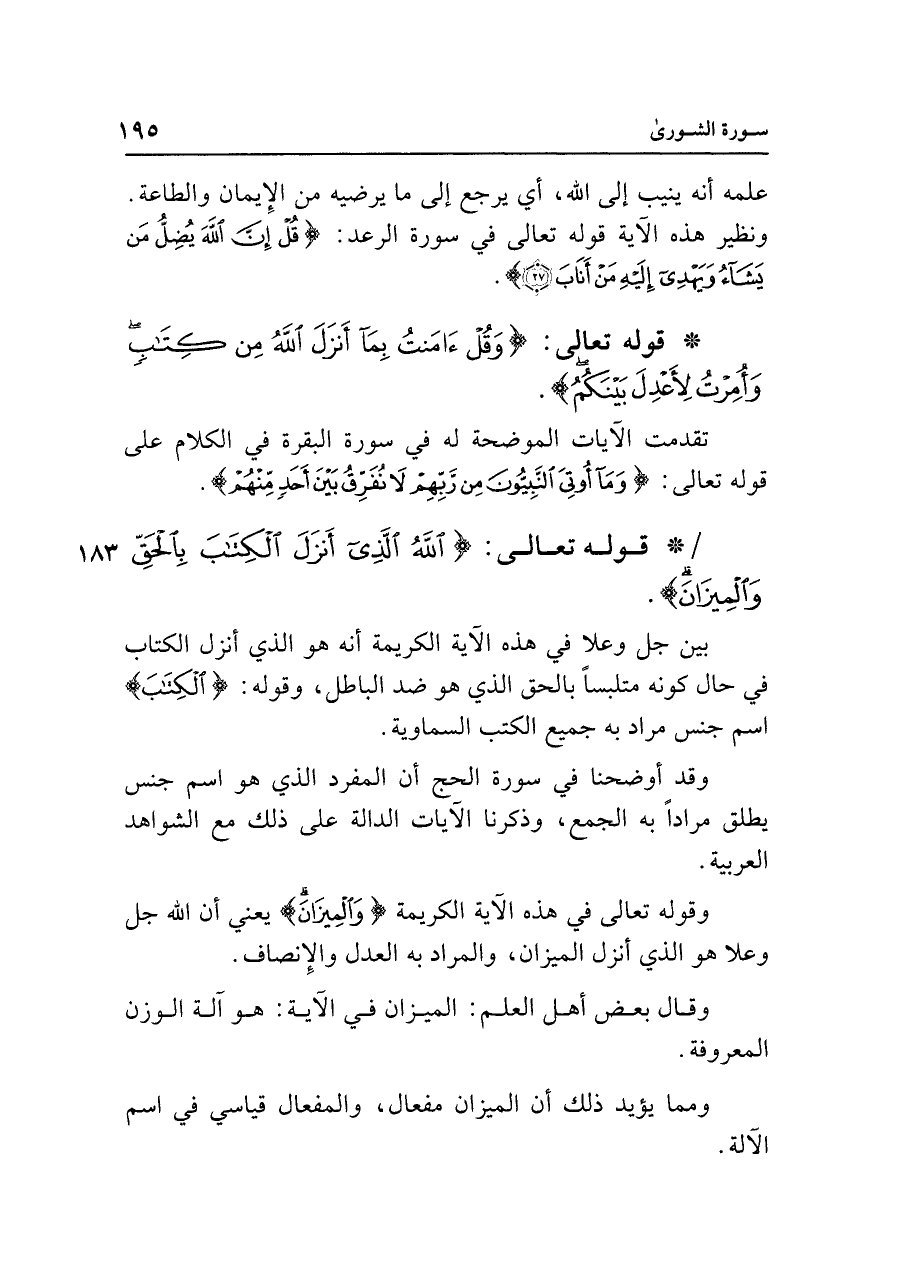 سورة الشورىٰ ١٩٥
علمه أنه ينيب إلى الله، أي يرجع إلى ما يرضيه من الإيمان والطاعة.
ونظير هذه الآية قوله تعالى في سورة الرعد: ﴿قُلْ إِنَّ ٱللَّهَ يُضِلُّ مَن
يَشَآءُ وَيَهْدِىٓ إِلَيْهِ مَنْ أَنَابَ ٢٧﴾.
* قوله تعالى: ﴿وَقُلْ ءَامَنتُ بِمَآ أَنزَلَ ٱللَّهُ مِن كِتَٰبٍۖ
وَأُمِرْتُ لِأَعْدِلَ بَيْنَكُمُۖ﴾.
تقدمت الآيات الموضحة له في سورة البقرة في الكلام على
قوله تعالى: ﴿وَمَآ أُوتِىَ ٱلنَّبِيُّونَ مِن رَّبِّهِمْ لَا نُفَرِّقُ بَيْنَ أَحَدٍ مِّنْهُمْ﴾.
/ * قوله تعالى: ﴿ٱللَّهُ ٱلَّذِىٓ أَنزَلَ ٱلْكِتَٰبَ بِٱلْحَقِّ ١٨٣
وَٱلْمِيزَانَۗ﴾.
بين جل وعلا في هذه الآية الكريمة أنه هو الذي أنزل الكتاب
في حال كونه متلبساً بالحق الذي هو ضد الباطل، وقوله: ﴿ٱلْكِتَٰبَ﴾
اسم جنس مراد به جميع الكتب السماوية.
وقد أوضحنا في سورة الحج أن المفرد الذي هو اسم جنس
يطلق مراداً به الجمع، وذكرنا الآيات الدالة على ذلك مع الشواهد
العربية.
وقوله تعالى في هذه الآية الكريمة ﴿وَٱلْمِيزَانَۗ﴾ يعني أن الله جل
وعلا هو الذي أنزل الميزان، والمراد به العدل والإنصاف.
وقال بعض أهل العلم: الميزان في الآية: هو آلة الوزن
المعروفة.
ومما يؤيد ذلك أن الميزان مفعال، والمفعال قياسي في اسم
الآلة.